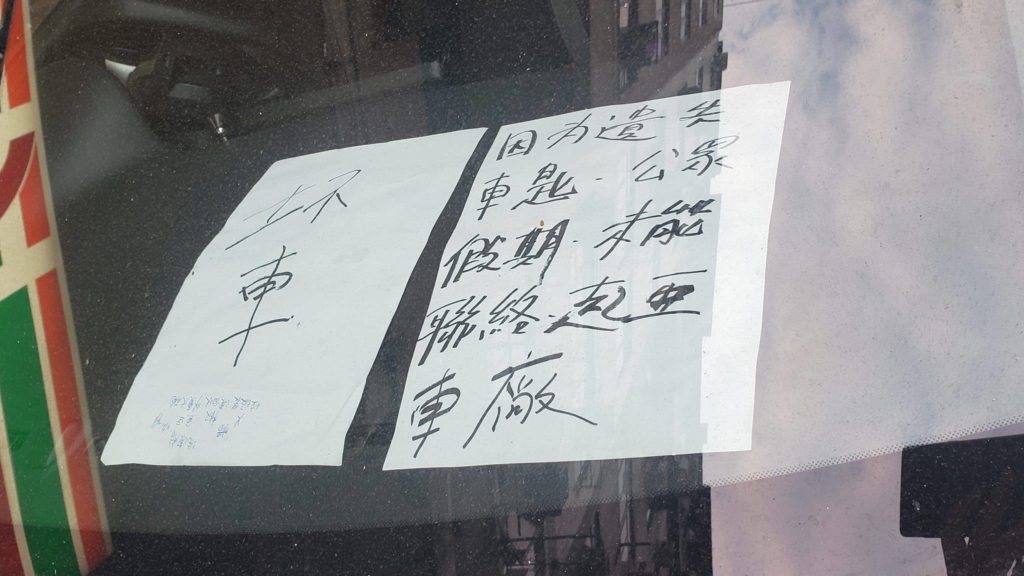 坏
車
因为遺失
車匙．公眾
假期．未能
聯絡．起亜
車廠